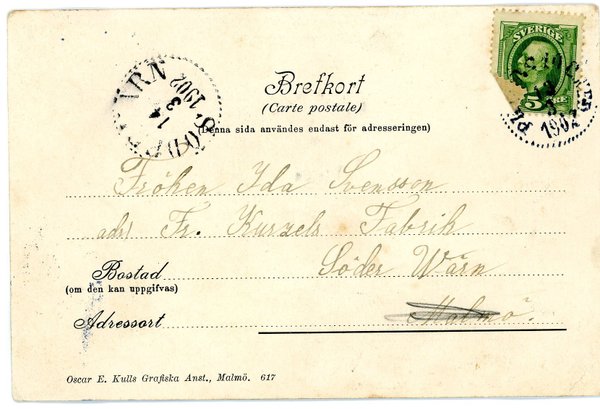 SVERIGE
5
1902
Brefkort
(Carte postale)
14
3
1902
(Denna sida användes endast för adresseringen)
Fröken Ida Svensson
adr/ Fr. Kurzels Fabrik
Söder Wärn
Bostad
(om den kan uppgifvas)
Malmö.
Adressort
Oscar E. Kulls Grafiska Anst., Malmö. 617